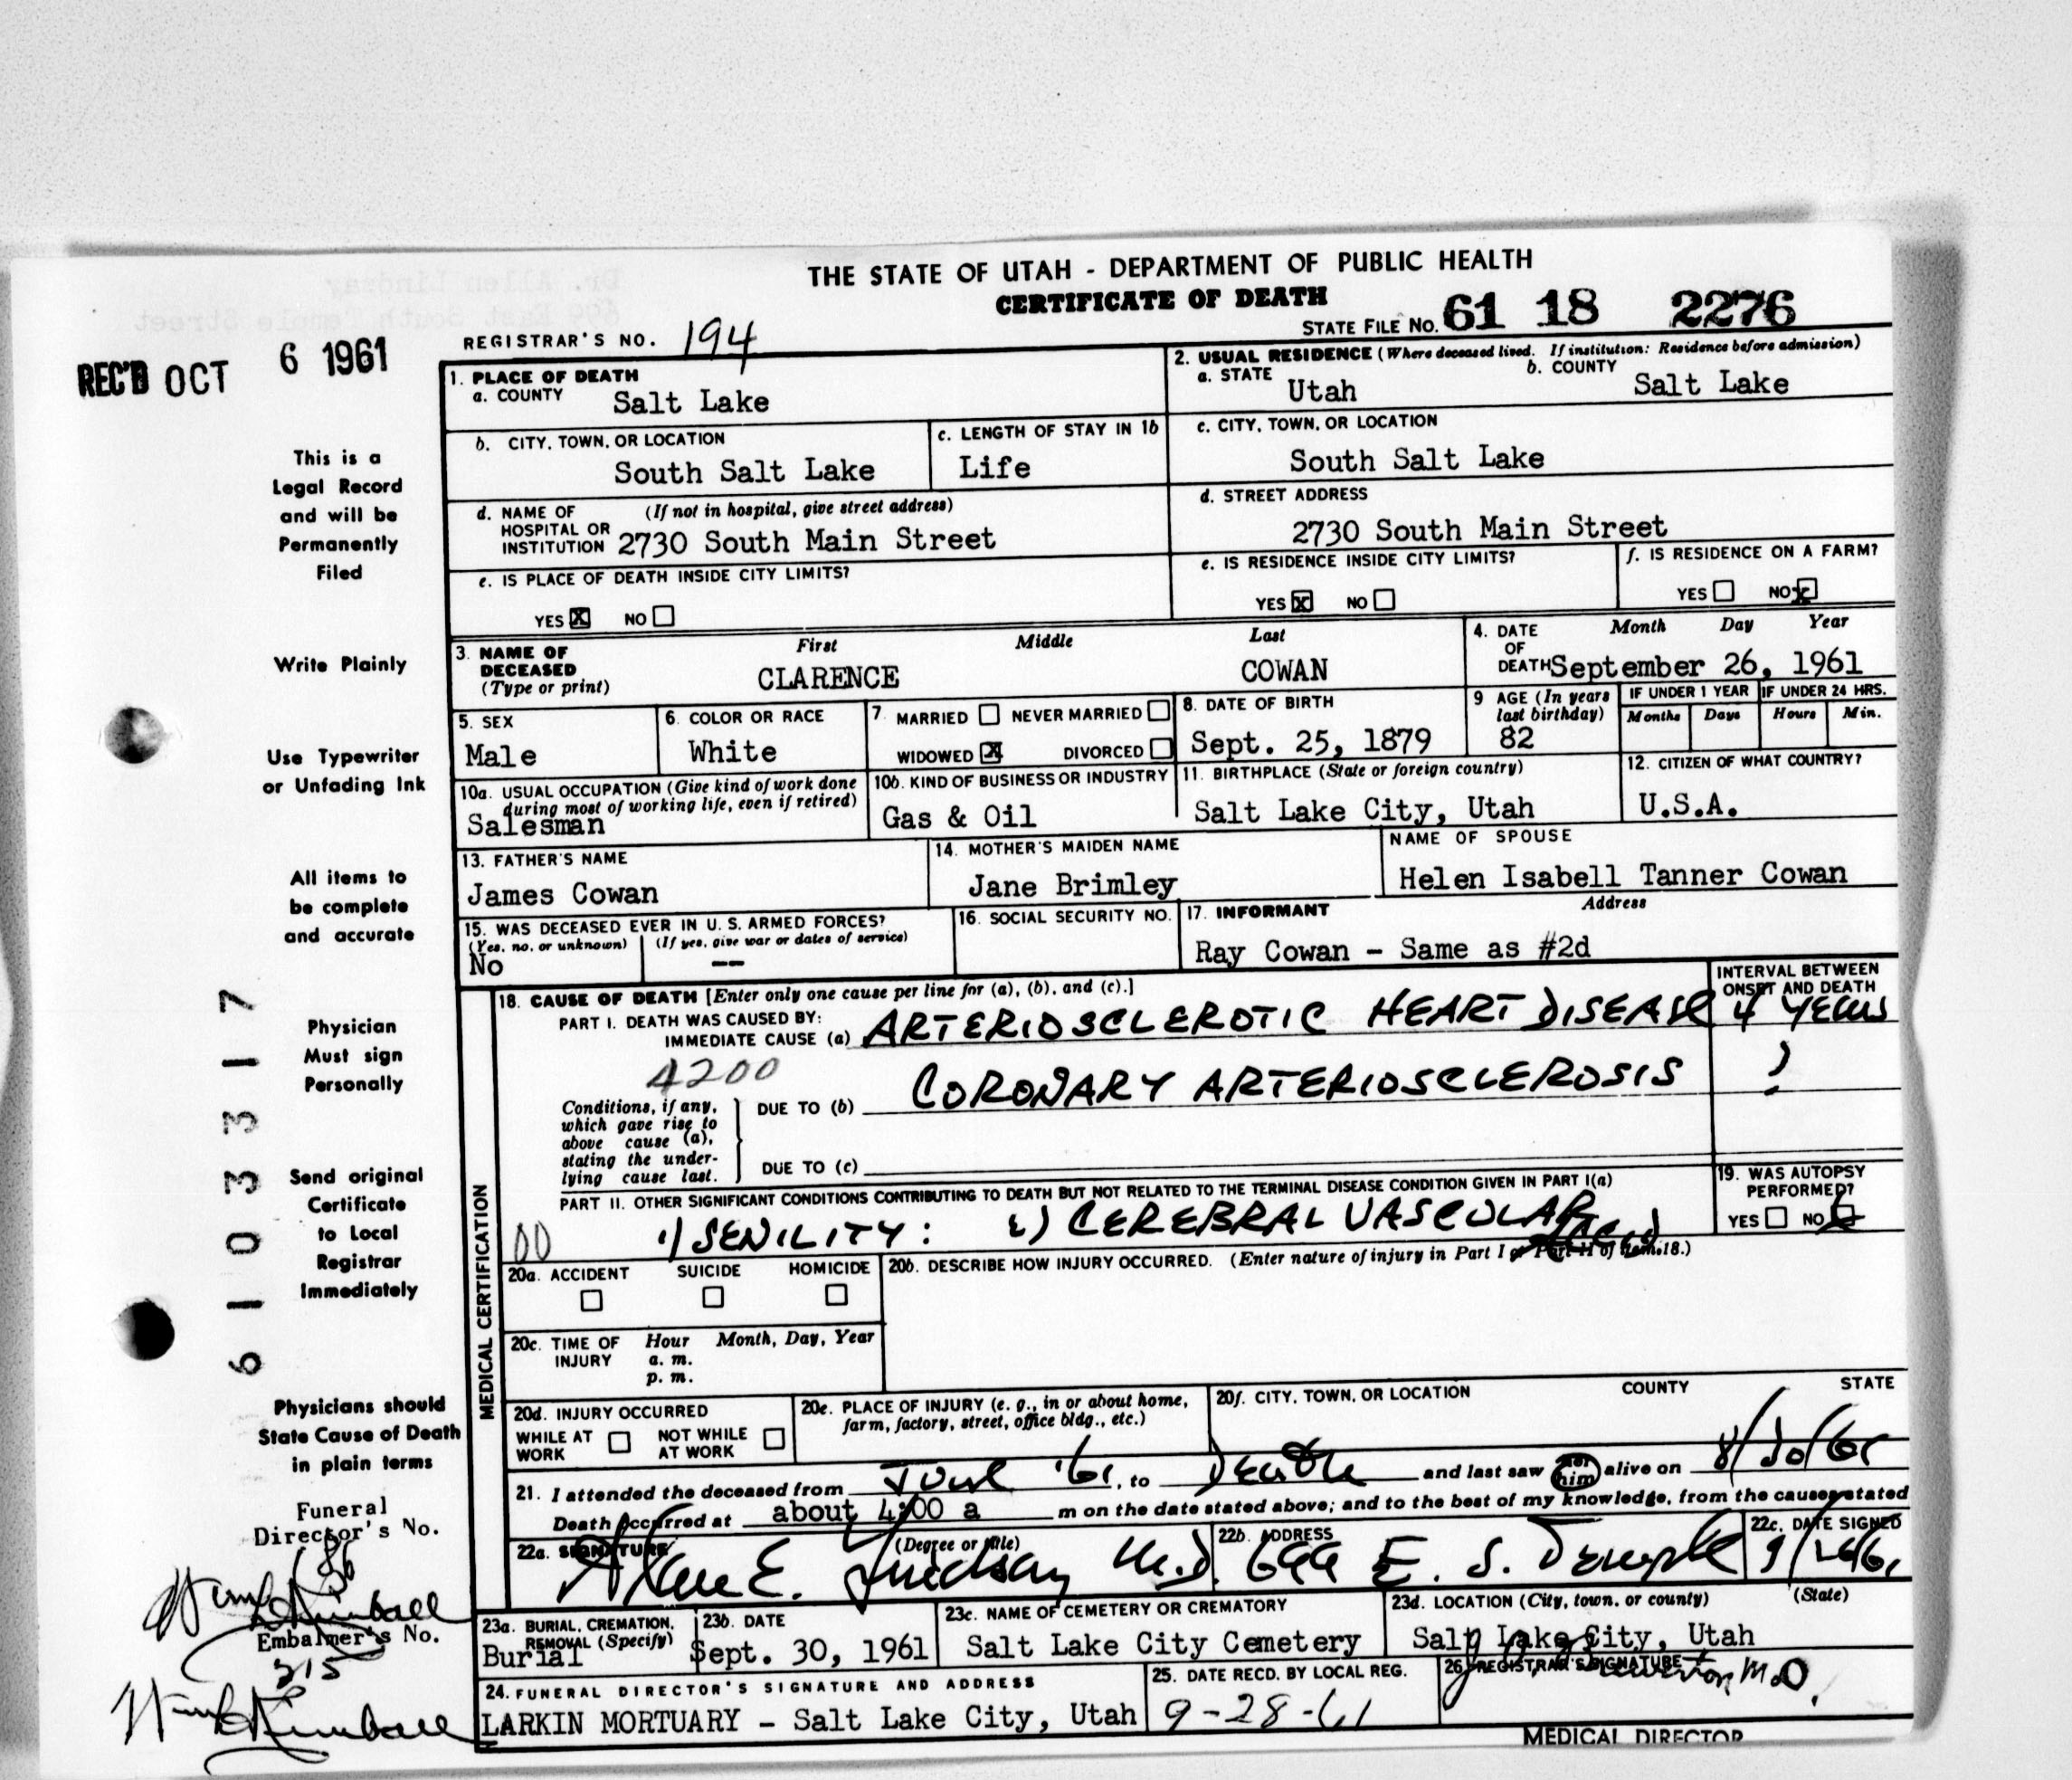 THE STATE OF UTAH - DEPARTMENT OF PUBLIC HEALTH
CERTIFICATE OF DEATH
STATE FILE NO. 61 18 2276
REGISTRAR'S NO. 194
REC'D OCT 6 1961
1. PLACE OF DEATH
a. COUNTY Salt Lake
2. USUAL RESIDENCE (Where deceased lived. If institution: Residence before admission)
a. STATE Utah b. COUNTY Salt Lake
b. CITY, TOWN, OR LOCATION South Salt Lake
c. LENGTH OF STAY IN 1b Life
c. CITY, TOWN, OR LOCATION South Salt Lake
d. NAME OF HOSPITAL OR INSTITUTION (If not in hospital, give street address) 2730 South Main Street
d. STREET ADDRESS 2730 South Main Street
e. IS PLACE OF DEATH INSIDE CITY LIMITS? YES X NO
e. IS RESIDENCE INSIDE CITY LIMITS? YES X NO
f. IS RESIDENCE ON A FARM? YES NO X
3. NAME OF DECEASED (Type or print) First Middle Last
CLARENCE COWAN
4. DATE OF DEATH Month Day Year
September 26, 1961
5. SEX Male
6. COLOR OR RACE White
7. MARRIED NEVER MARRIED WIDOWED X DIVORCED
8. DATE OF BIRTH Sept. 25, 1879
9 AGE (In years last birthday) 82
IF UNDER 1 YEAR Months Days
IF UNDER 24 HRS. Hours Min.
10a. USUAL OCCUPATION (Give kind of work done during most of working life, even if retired) Salesman
10b. KIND OF BUSINESS OR INDUSTRY Gas & Oil
11. BIRTHPLACE (State or foreign country) Salt Lake City, Utah
12. CITIZEN OF WHAT COUNTRY? U.S.A.
13. FATHER'S NAME James Cowan
14. MOTHER'S MAIDEN NAME Jane Brimley
NAME OF SPOUSE Helen Isabell Tanner Cowan
15. WAS DECEASED EVER IN U. S. ARMED FORCES?
(Yes, no, or unknown) No (If yes, give war or dates of service) --
16. SOCIAL SECURITY NO.
17. INFORMANT Address
Ray Cowan - Same as #2d
MEDICAL CERTIFICATION
18. CAUSE OF DEATH [Enter only one cause per line for (a), (b), and (c).]
INTERVAL BETWEEN ONSET AND DEATH
PART I. DEATH WAS CAUSED BY:
IMMEDIATE CAUSE (a) ARTERIOSCLEROTIC HEART DISEASE 4 YEARS
4200
Conditions, if any, which gave rise to above cause (a), stating the underlying cause last.
DUE TO (b) CORONARY ARTERIOSCLEROSIS ?
DUE TO (c)
PART II. OTHER SIGNIFICANT CONDITIONS CONTRIBUTING TO DEATH BUT NOT RELATED TO THE TERMINAL DISEASE CONDITION GIVEN IN PART I(a)
00 1) SENILITY: 2) CEREBRAL VASCULAR
19. WAS AUTOPSY PERFORMED? YES NO X
20a. ACCIDENT SUICIDE HOMICIDE
20b. DESCRIBE HOW INJURY OCCURRED. (Enter nature of injury in Part I or Part II of item 18.)
20c. TIME OF INJURY Hour Month, Day, Year
a. m.
p. m.
20d. INJURY OCCURRED
WHILE AT WORK NOT WHILE AT WORK
20e. PLACE OF INJURY (e. g., in or about home, farm, factory, street, office bldg., etc.)
20f. CITY, TOWN, OR LOCATION COUNTY STATE
21. I attended the deceased from June '61, to Death and last saw her him alive on 8/30/61
Death occurred at about 4:00 a m on the date stated above; and to the best of my knowledge, from the causes stated
22a. SIGNATURE (Degree or title) Allen E. Lindsay M.D.
22b. ADDRESS 699 E. S. Temple
22c. DATE SIGNED 9/26/61
23a. BURIAL, CREMATION, REMOVAL (Specify) Burial
23b. DATE Sept. 30, 1961
23c. NAME OF CEMETERY OR CREMATORY Salt Lake City Cemetery
23d. LOCATION (City, town, or county) (State) Salt Lake City, Utah
24. FUNERAL DIRECTOR'S SIGNATURE AND ADDRESS
LARKIN MORTUARY - Salt Lake City, Utah
25. DATE RECD. BY LOCAL REG. 9-28-61
26. REGISTRAR'S SIGNATURE M.D.
MEDICAL DIRECTOR
This is a
Legal Record
and will be
Permanently
Filed
Write Plainly
Use Typewriter
or Unfading Ink
All items to
be complete
and accurate
Physician
Must sign
Personally
Send original
Certificate
to Local
Registrar
Immediately
Physicians should
State Cause of Death
in plain terms
Funeral
Director's No.
186
Kimball
Embalmer's No.
215
Kimball
6103317
Dr. Allen Lindsay
699 East South Temple Street